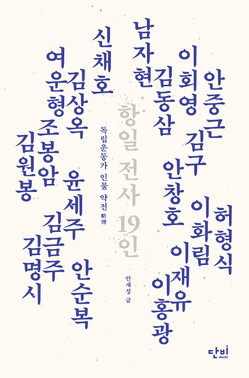 안중근
이회영
김동삼
남자현
허형식
이화림
김구
이재유
안창호
이홍광
항일 전사 19인
독립운동가 인물 약전 略傳
안재성 글
신채호
김상옥
여운형
윤세주
조봉암
안순복
김금주
김원봉
김명시
단비